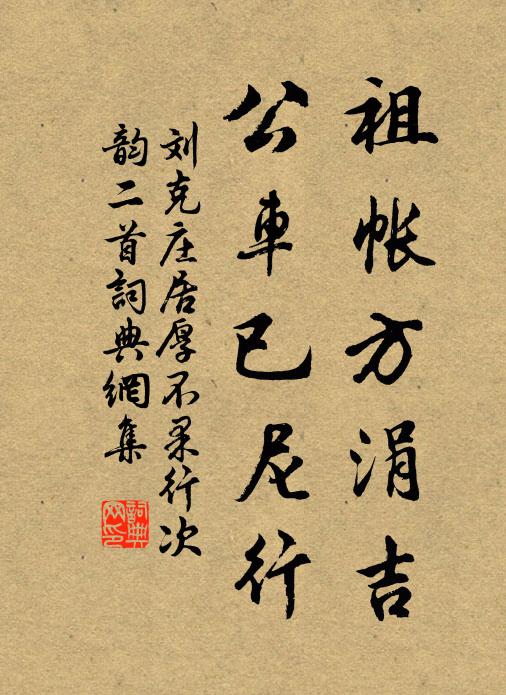 祖帐方涓吉
公車已尼行
刘克庄居厚不果行次
韵二首詞典網集
詞典網印